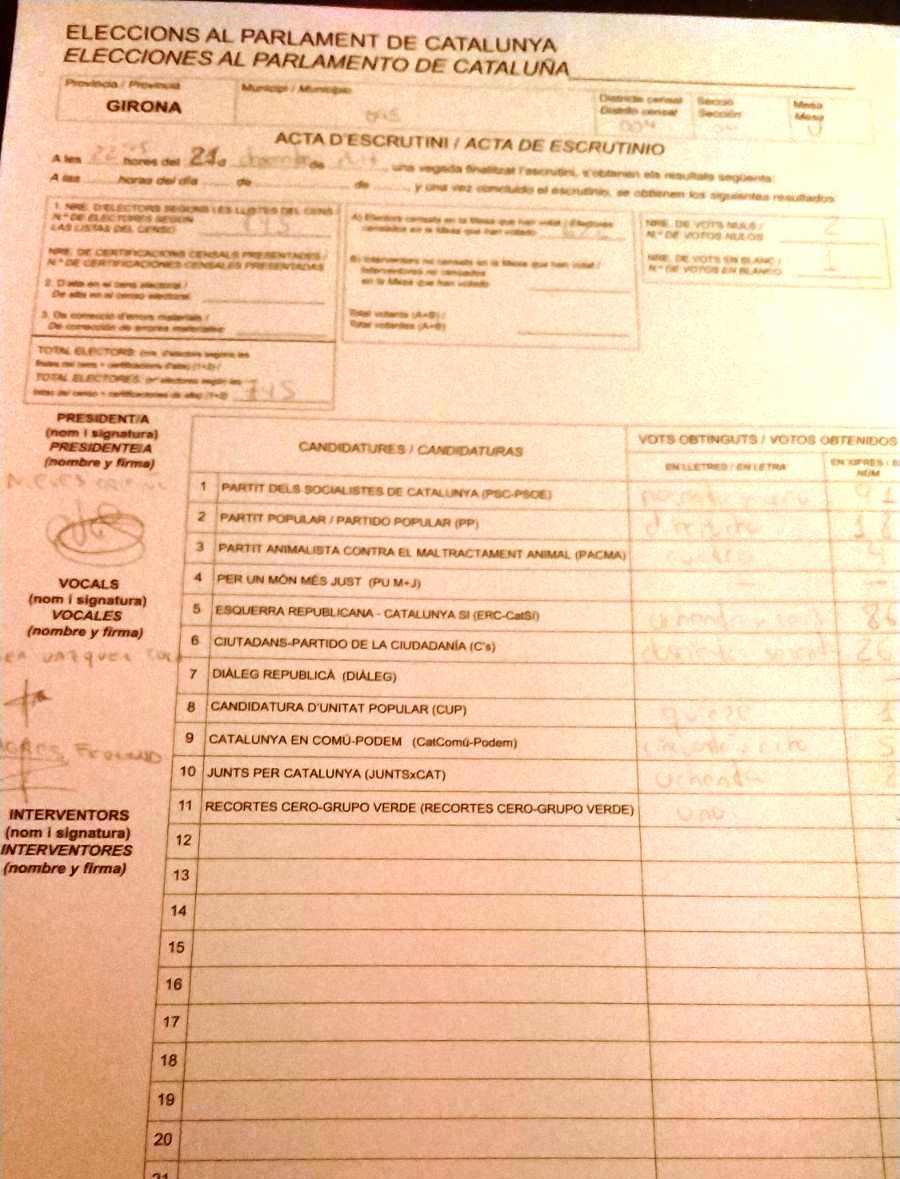 ELECCIONS AL PARLAMENT DE CATALUNYA
ELECCIONES AL PARLAMENTO DE CATALUÑA
Província / Provincia
GIRONA
Municipi / Municipio
Districte censal
Distrito censal
004
Secció
Sección
Mesa
Mesa
U
ACTA D'ESCRUTINI / ACTA DE ESCRUTINIO
A les hores del 21 d de , una vegada finalitzat l'escrutini, s'obtenen els resultats següents:
A las horas del día de de , y una vez concluido el escrutinio, se obtienen los siguientes resultados:
1. NRE. D'ELECTORS SEGONS LES LLISTES DEL CENS
N.º DE ELECTORES SEGÚN
LAS LISTAS DEL CENSO
NRE. DE CERTIFICACIONS CENSALS PRESENTADES /
N.º DE CERTIFICACIONES CENSALES PRESENTADAS
2. D'alta en el cens electoral /
De alta en el censo electoral
3. De correcció d'errors materials /
De corrección de errores materiales
TOTAL ELECTORS: (nre. d'electors segons les
llistes del cens + certificacions d'alta) (1+2) /
TOTAL ELECTORES: (nº electores según las
listas del censo + certificaciones de alta) (1+2) 745
A) Electors censats en la Mesa que han votat / Electores
censados en la Mesa que han votado
B) Interventors no censats en la Mesa que han votat /
Interventores no censados
en la Mesa que han votado
Total votants (A+B) /
Total votantes (A+B)
NRE. DE VOTS NULS /
N.º DE VOTOS NULOS 2
NRE. DE VOTS EN BLANC /
N.º DE VOTOS EN BLANCO 1
PRESIDENT/A
(nom i signatura)
PRESIDENTE/A
(nombre y firma)
VOCALS
(nom i signatura)
VOCALES
(nombre y firma)
VAZQUEZ
INTERVENTORS
(nom i signatura)
INTERVENTORES
(nombre y firma)
CANDIDATURES / CANDIDATURAS
VOTS OBTINGUTS / VOTOS OBTENIDOS
EN LLETRES / EN LETRA
EN XIFRES /
NÚM
1 PARTIT DELS SOCIALISTES DE CATALUNYA (PSC-PSOE) noventa y uno 91
2 PARTIT POPULAR / PARTIDO POPULAR (PP) 18
3 PARTIT ANIMALISTA CONTRA EL MALTRACTAMENT ANIMAL (PACMA) cuatro 4
4 PER UN MÓN MÉS JUST (PU M+J) — —
5 ESQUERRA REPUBLICANA - CATALUNYA SÍ (ERC-CatSí) ochenta y seis 86
6 CIUTADANS-PARTIDO DE LA CIUDADANÍA (C's) doscientos 26
7 DIÀLEG REPUBLICÀ (DIÀLEG)
8 CANDIDATURA D'UNITAT POPULAR (CUP) quinze 1
9 CATALUNYA EN COMÚ-PODEM (CatComú-Podem) 5
10 JUNTS PER CATALUNYA (JUNTSxCAT) ochenta
11 RECORTES CERO-GRUPO VERDE (RECORTES CERO-GRUPO VERDE) uno
12
13
14
15
16
17
18
19
20
21